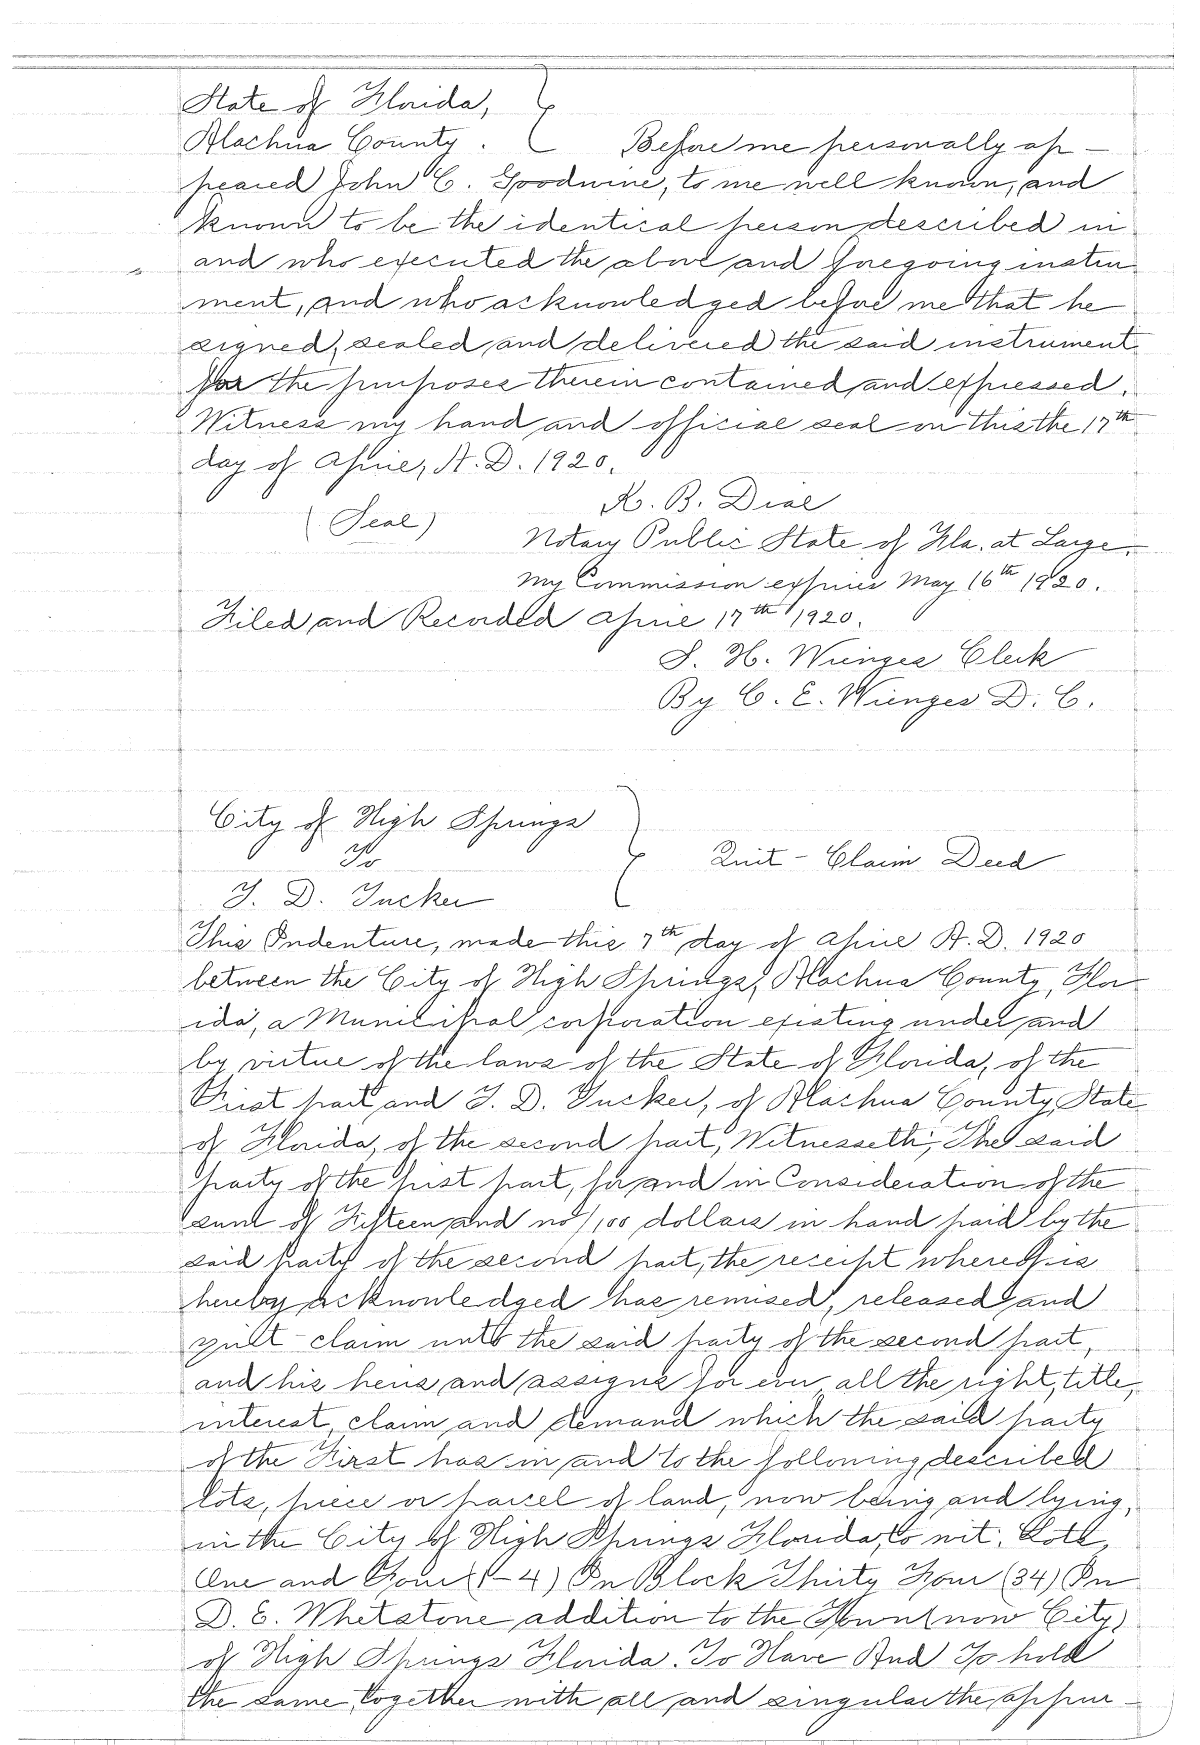 State of Florida,
Alachua County. Before me personally ap-
peared John C. Goodwine, to me well known, and
known to be the identical person described in
and who executed the above and foregoing instru
ment, and who acknowledged before me that he
signed, sealed and delivered the said instrument
for the purposes therein contained and expressed.
Witness my hand and official seal on this the 17th
day of April, A. D. 1920.
(Seal) R. B. Dial
Notary Public State of Fla. at Large.
My Commission expires May 16th 1920.
Filed and Recorded April 17th 1920.
S. H. Wienges Clerk
By C. E. Wienges D. C.
City of High Springs
To Quit-Claim Deed
T. D. Tucker
This Indenture, made this 7th day of April A. D. 1920
between the City of High Springs, Alachua County, Flor
ida, a Municipal corporation existing under and
by virtue of the laws of the State of Florida, of the
First part and T. D. Tucker, of Alachua County, State
of Florida, of the second part, Witnesseth; The said
party of the first part, for and in Consideration of the
sum of Fifteen and no/100 dollars in hand paid by the
said party of the second part, the receipt whereof is
hereby acknowledged has remised, released and
quit-claim unto the said party of the second part,
and his heirs and assigns for ever all the right, title,
interest, claim and demand which the said party
of the First has in and to the following described
lots, piece or parcel of land, now being and lying,
in the City of High Springs Florida, to wit: Lots,
One and Four (1-4) In Block Thirty Four (34) In
D. E. Whetstone addition to the Town (now City)
of High Springs Florida. To Have And To hold
the same, together with all and singular the appur-